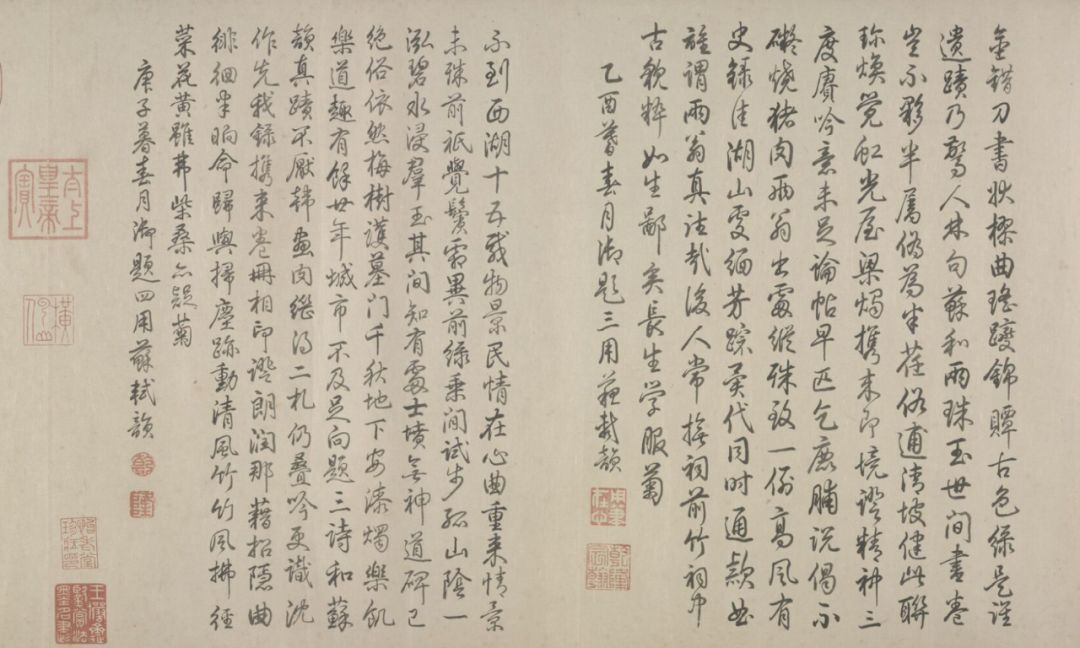 金錯刀書妙標曲瑤躞錦贉古色綠是誰
遺蹟乃驚人林句蘇和兩珠玉世間書卷
豈不夥半屬偽為半荏俗逋清坡健此聯
珎煥覺虹光屋梁燭攜來即境證精神三
度賡吟意未足論帖早匹乞鹿脯說偈不
礙燒猪肉兩翁出處縱殊致一例高風有
史錄佳湖山處緬芳蹤異代同時通款曲
誰謂兩翁真往哉後人常撫祠前竹祠中
古貌粹如生鄙矣長生學服菊
乙酉暮春月御題三用蘇軾韻
乾隆宸翰
不到西湖十五載物景民情在心曲重來情景
未殊前祇覺鬢霜異前綠乘間試步孤山陰一
泓碧水浸羣玉其間知有處士墳無神道碑已
絕俗依然梅樹護墓門千秋地下安漆燭樂飢
樂道趣有餘廿年城市不及足向題三詩和蘇
韻真蹟不厭韓畫肉繼得二札仍疊吟更識沈
作先我錄攜來卷冊相印證朗潤那藉招隱曲
徘徊半晌命歸輿掃塵跡動清風竹竹風拂徑
菜花黃雖弗柴桑亦疑菊
庚子暮春月御題四用蘇軾韻
太上皇帝之寶